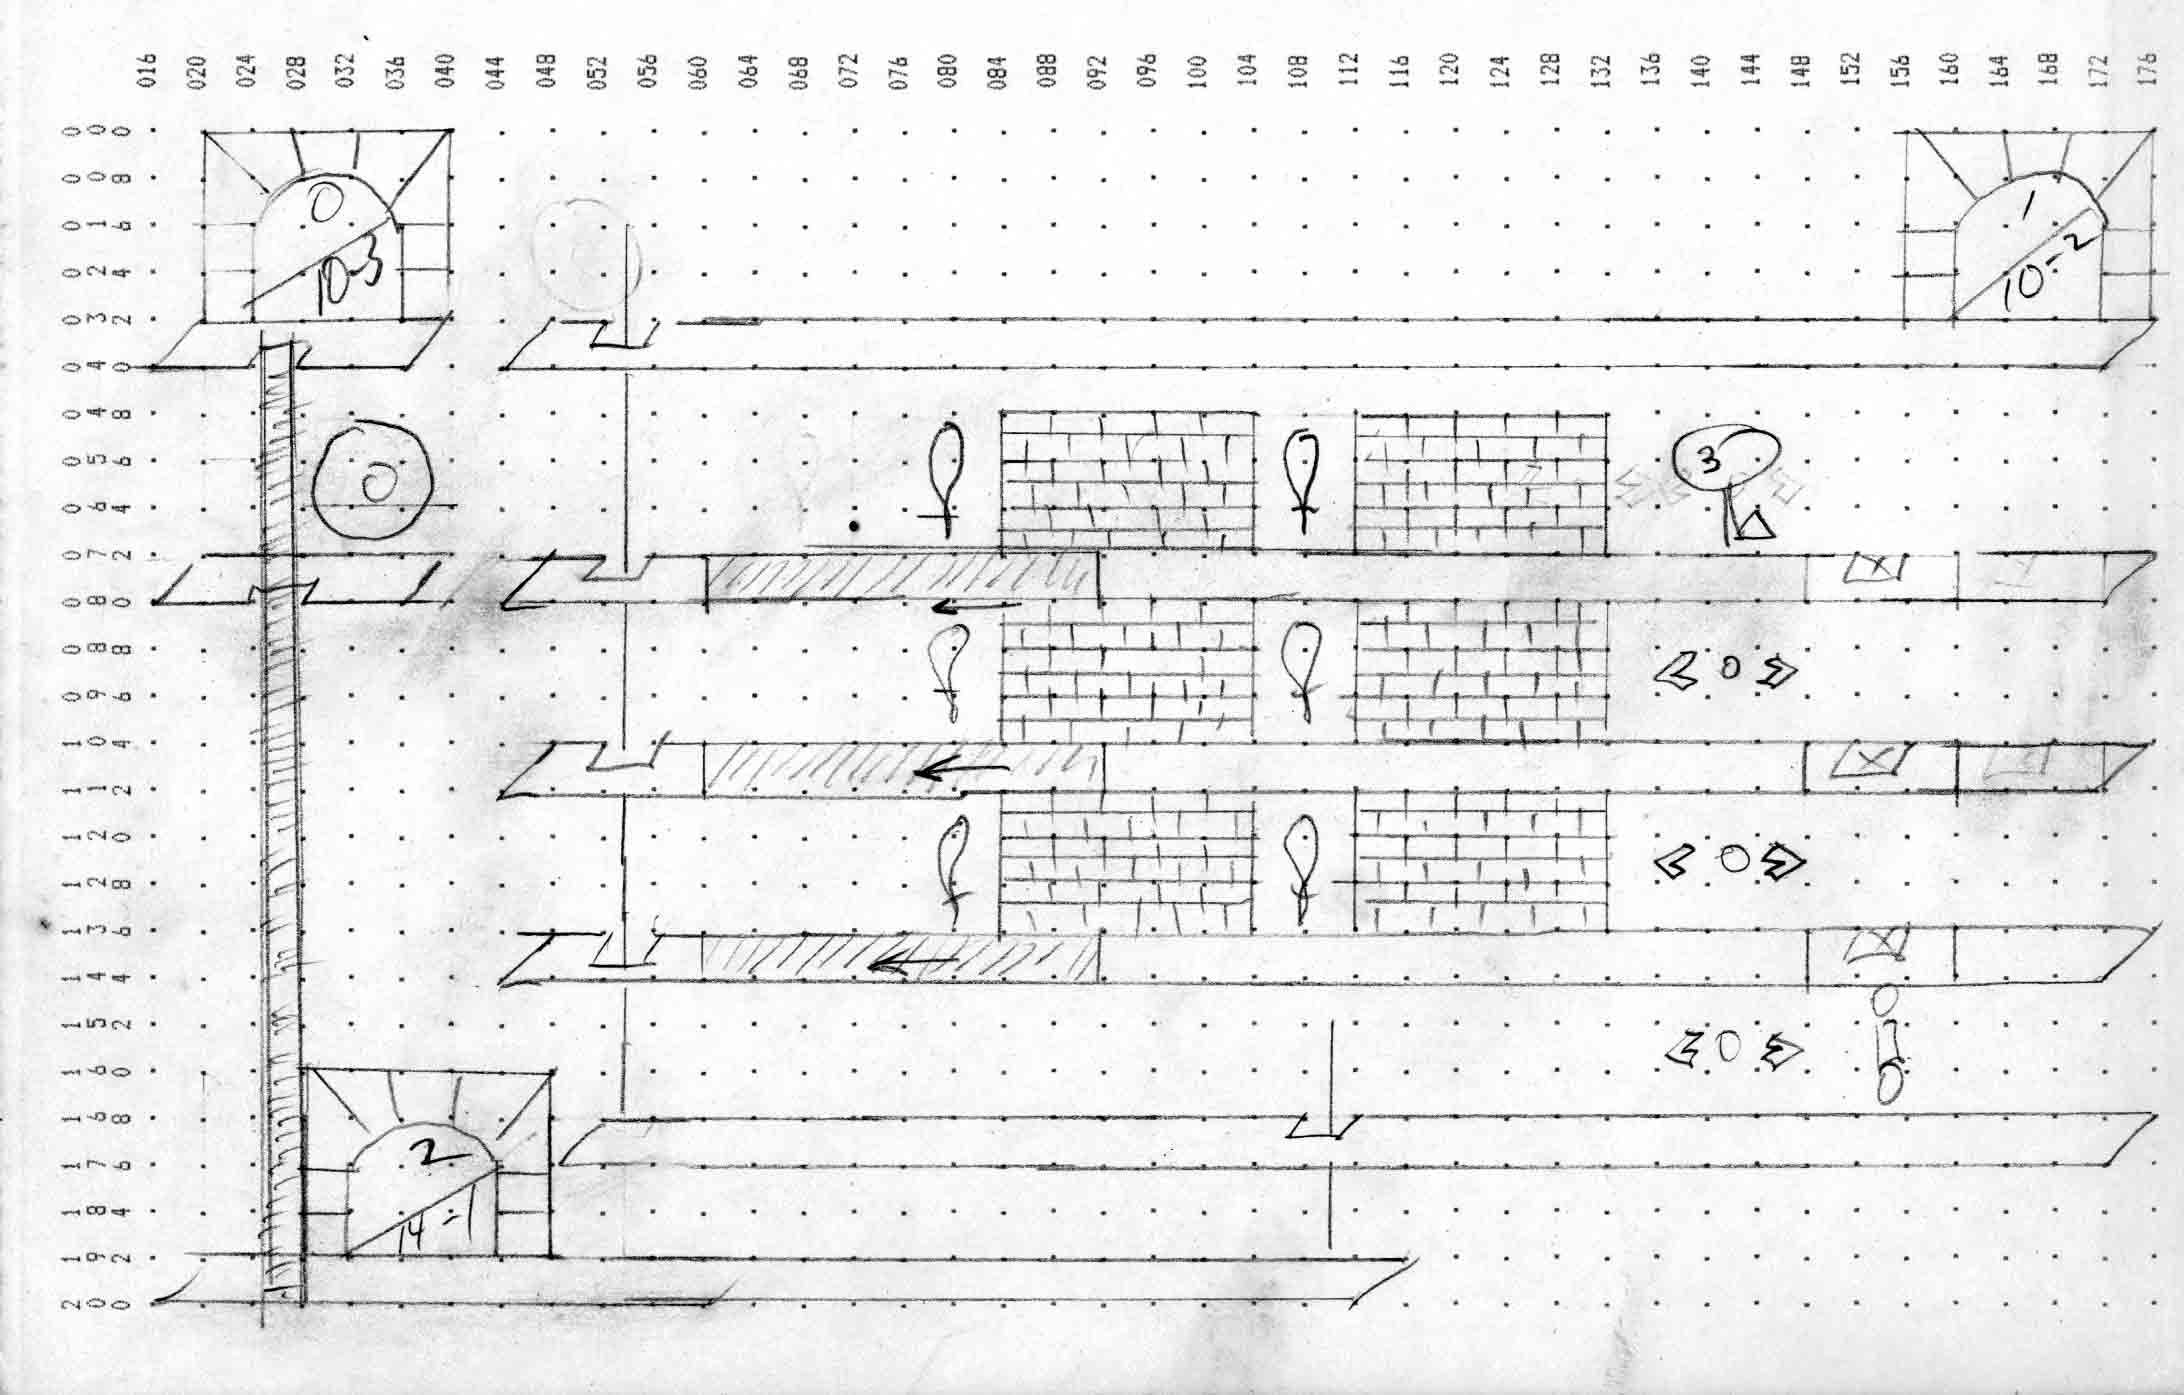 016 020 024 028 032 036 040 044 048 052 056 060 064 068 072 076 080 084 088 092 096 100 104 108 112 116 120 124 128 132 136 140 144 148 152 156 160 164 168 172 176
000
008
0 1
016
10-3 10-2
024
032
040
048
056
3
0
064
072
080
088
0
096
104
112
120
0
128
136
144
152
0
160
168
2
176
184
14-1
192
200